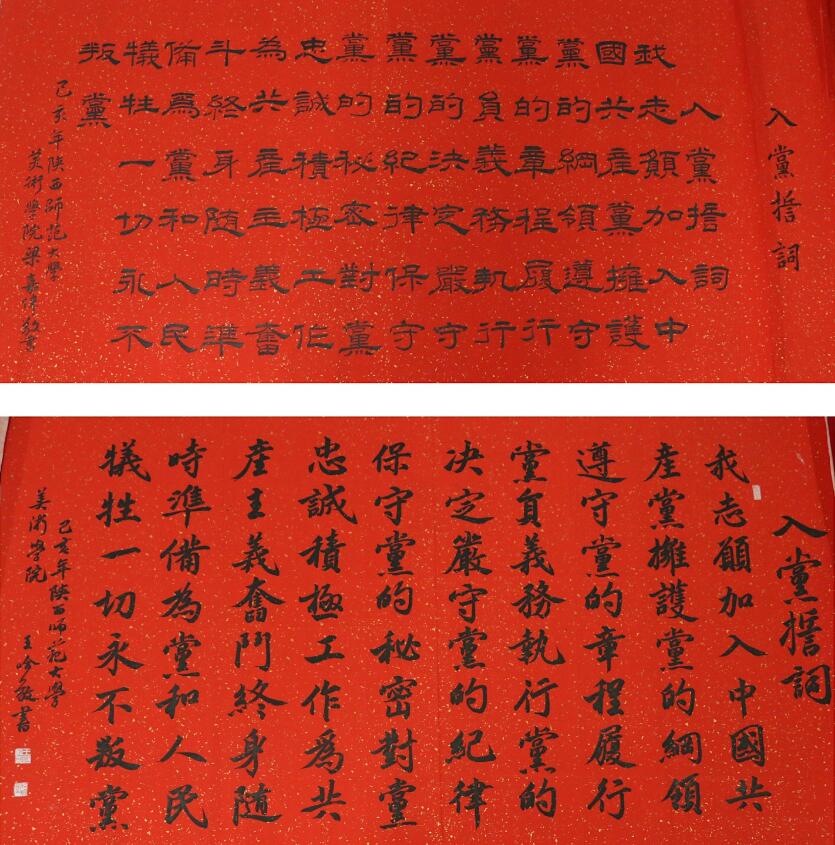 入黨誓詞
入黨誓詞
我志願加入中
國共產黨擁護
黨的綱領遵守
黨的章程履行
黨員義務執行
黨的決定嚴守
黨的紀律保守
黨的秘密對黨
忠誠積極工作
為共產主義奮
斗終身隨時準
備爲黨和人民
犧牲一切永不
叛黨
己亥年陝西師范大學
美術學院梁嘉敬書
入黨誓詞
我志願加入中國共
產黨擁護黨的綱領
遵守黨的章程履行
黨員義務執行黨的
决定嚴守黨的紀律
保守黨的秘密對黨
忠誠積極工作為共
產主義奮鬥終身隨
時準備為黨和人民
犧牲一切永不叛黨
己亥年陝西師範大學
美術學院 王書